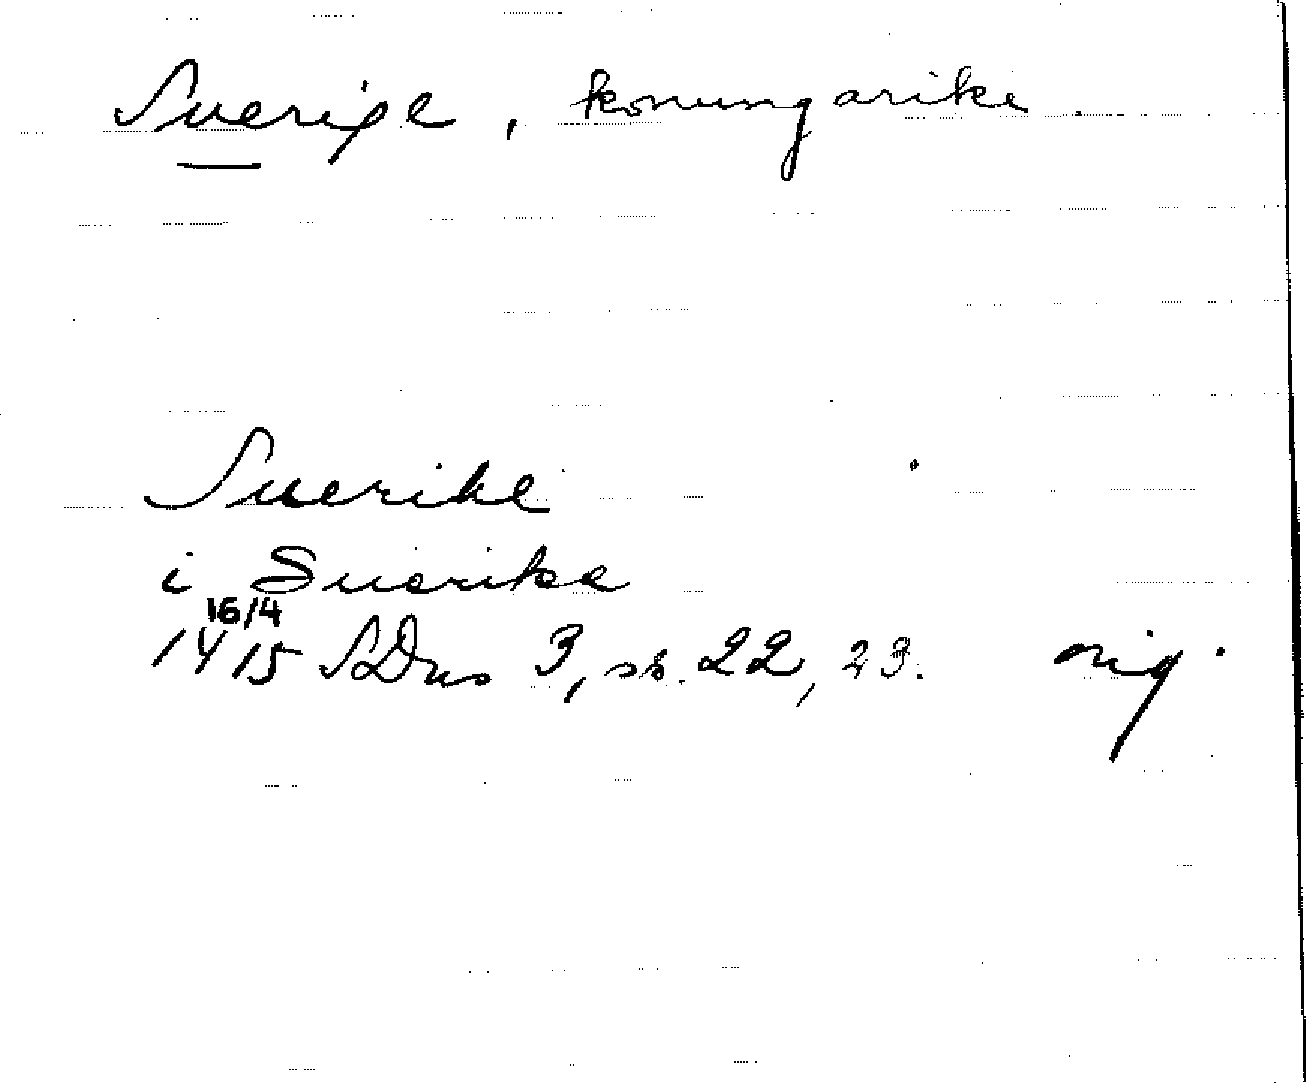 Sverige, konungarike.
Suerike
i Suerike
16/4
1415 SDns 3, sh. 22, 23. orig.